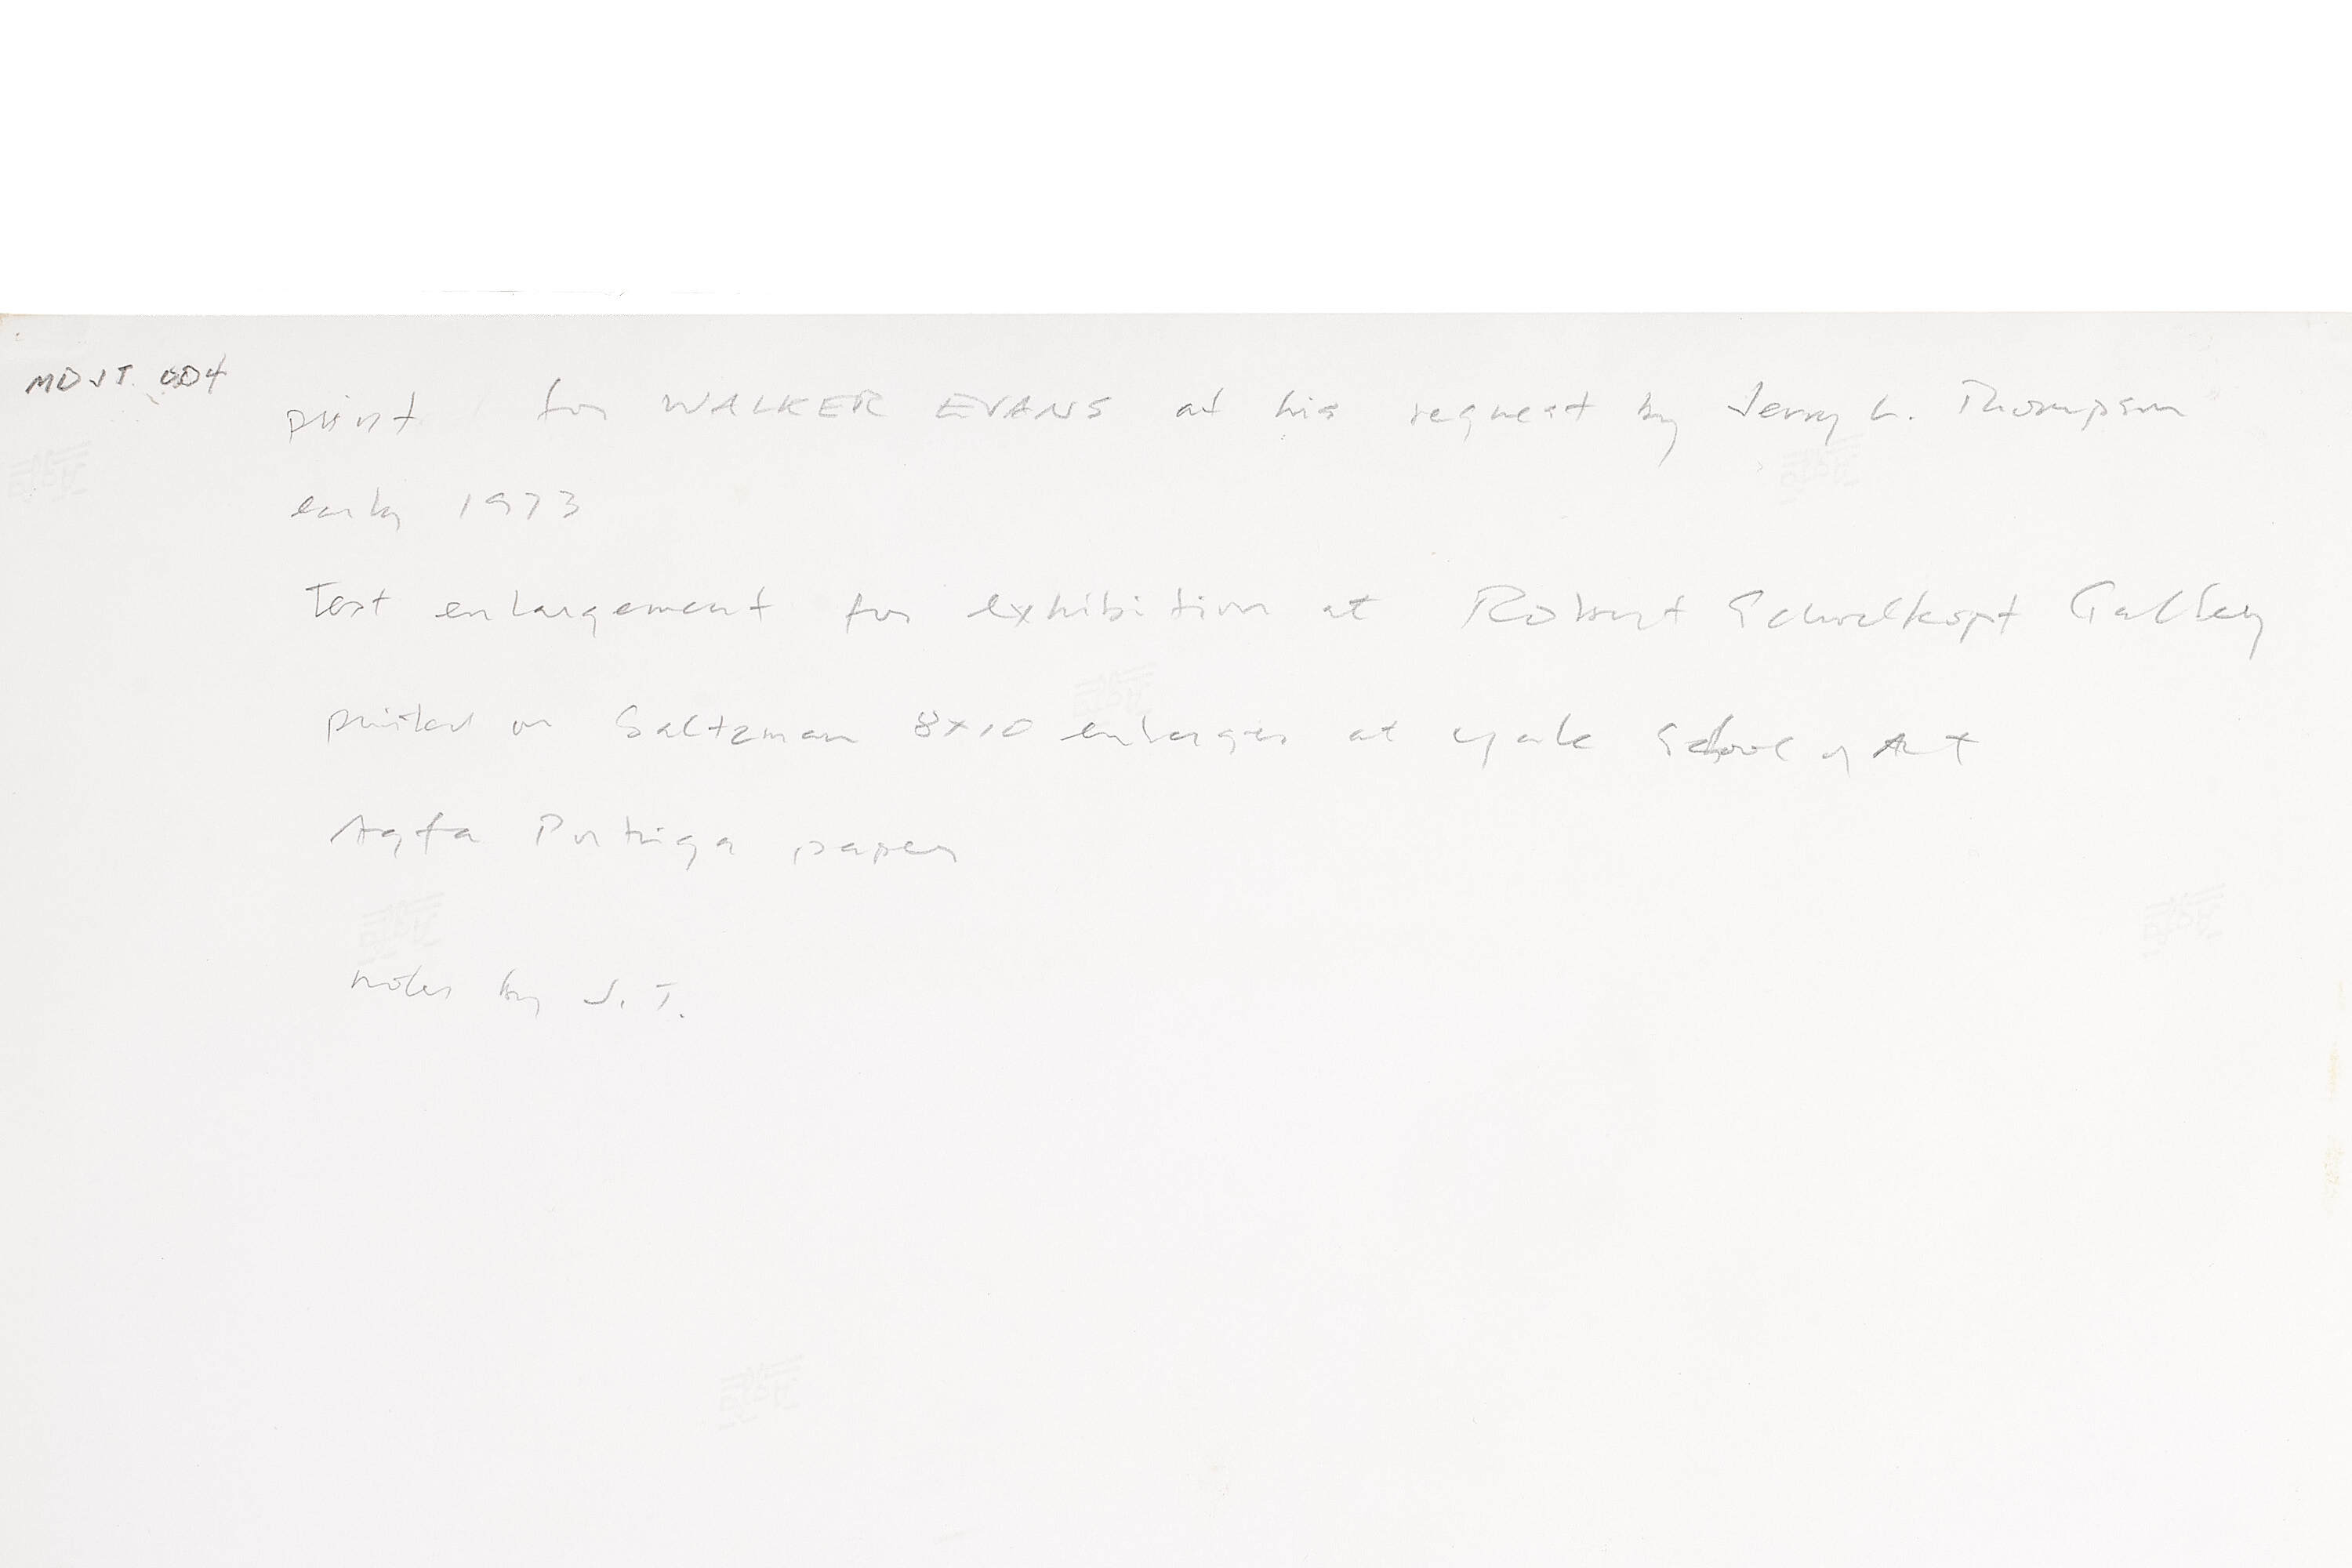 MDJT. 004
print for WALKER EVANS at his request by Jerry L. Thompson
early 1973
Test enlargement for exhibition at Robert Schoelkopf Gallery
printed on Saltzman 8x10 enlarger at Yale School of Art
Agfa Portriga paper
notes by J. T.